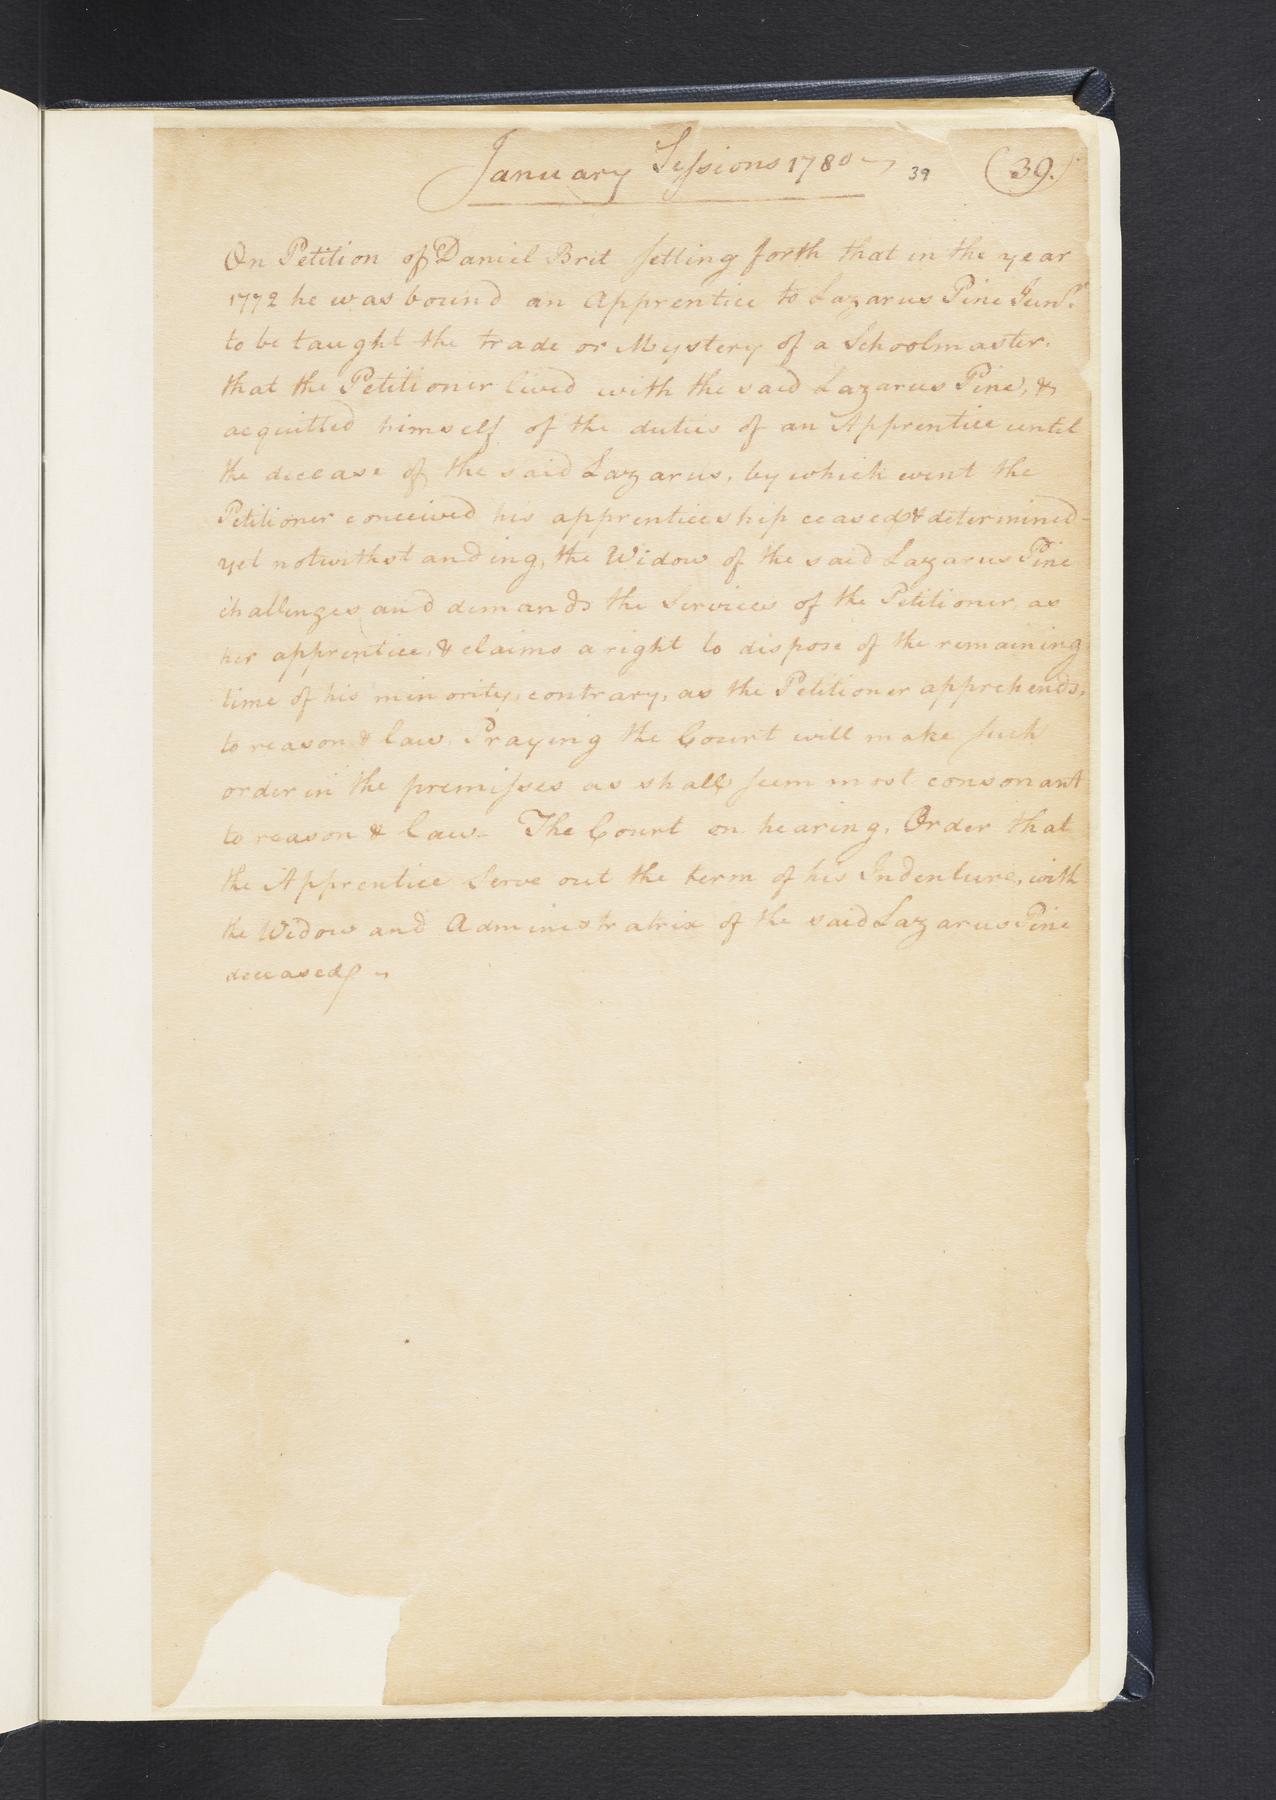 January Sessions 1780 39 (39.)
On Petition of Daniel Brit setting forth that in the year
1772 he was bound an Apprentice to Lazarus Pine Junr.
to be taught the trade or Mystery of a Schoolmaster.
that the Petitioner lived with the said Lazarus Pine, &
acquitted himself of the duties of an Apprentice until
the decease of the said Lazarus, by which event the
Petitioner conceived his apprenticeship ceased & determined -
yet notwithstanding, the Widow of the said Lazarus Pine
challenges and demands the Services of the Petitioner as
her apprentice, & claims a right to dispose of the remaining
time of his minority, contrary, as the Petitioner apprehends,
to reason & law. Praying the Court will make such
order in the premisses as shall seem most consonant
to reason & law - The Court on hearing, Order that
the Apprentice Serve out the term of his Indenture, with
the Widow and Administratrix of the said Lazarus Pine
deceased